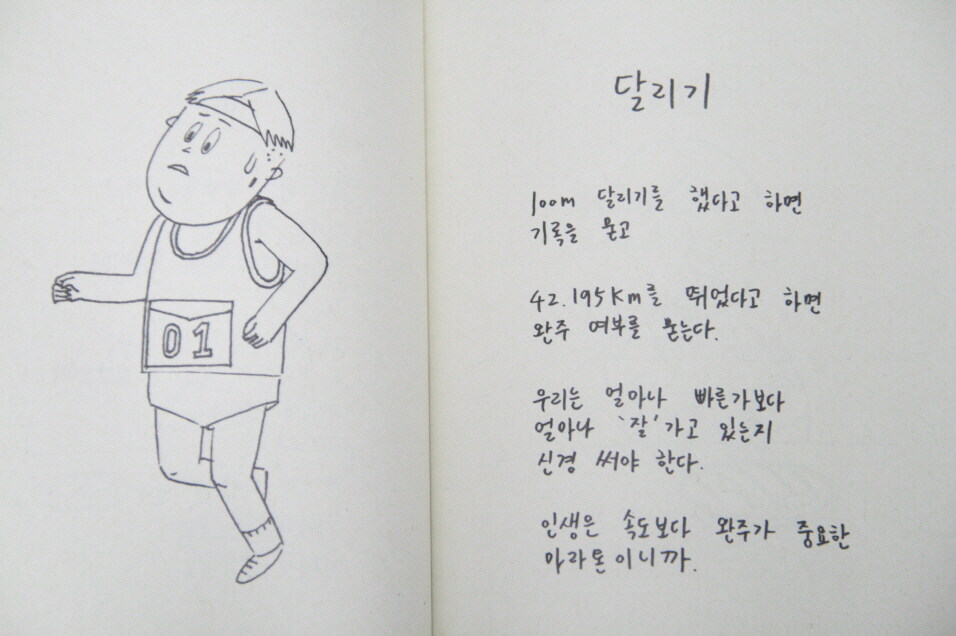 01
달리기
100m 달리기를 했다고 하면
기록을 묻고
42.195Km를 뛰었다고 하면
완주 여부를 묻는다.
우리는 얼마나 빠른가보다
얼마나 '잘' 가고 있는지
신경 써야 한다.
인생은 속도보다 완주가 중요한
마라톤이니까.